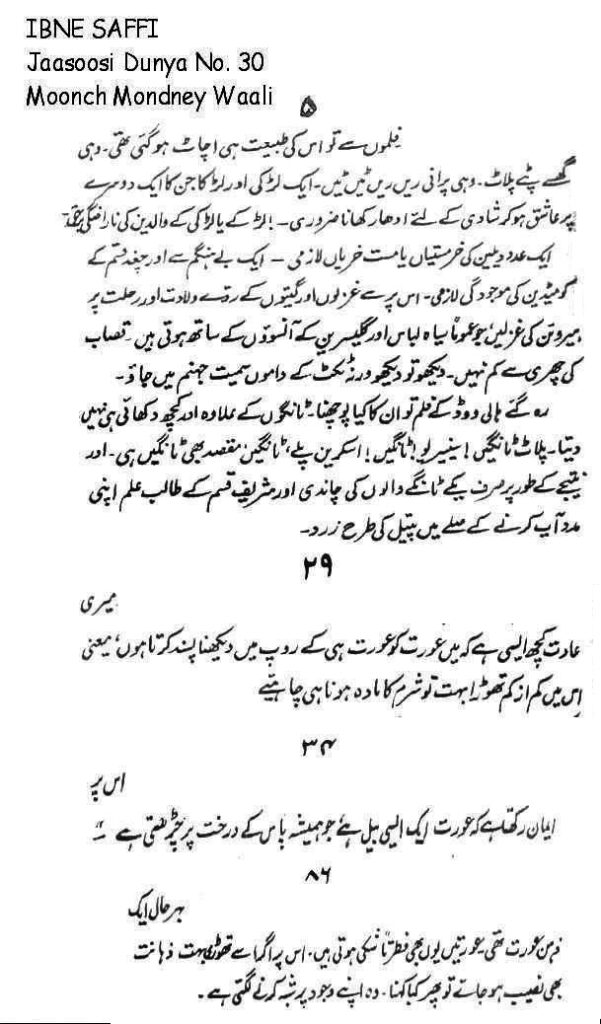 IBNE SAFFI
Jaasoosi Dunya No. 30
Moonch Mondney Waali
۵
فلموں سے تو اس کی طبیعت ہی اچاٹ ہو گئی تھی۔ وہی
گھسے پٹے پلاٹ۔ وہی پرانی ریں ریں ٹیں ٹیں۔ ایک لڑکی اور لڑکا جن کا ایک دوسرے
پر عاشق ہو کر شادی کے لئے ادھار کھانا ضروری۔ لڑکے یا لڑکی کے والدین کی ناراضگی
ایک عدد ویلن کی خرمستیاں یا مست خریاں لازمی – ایک بے ہنگم سے اور چغد قسم کے
کومیڈین کی موجودگی لازمی۔ اس پر سے غزلوں اور گیتوں کے ولادت اور رحلت پر
ہیروئن کی غزلیں جو عموماً سیاہ لباس اور گلیسرین کے آنسوؤں کے ساتھ ہوتی ہیں۔ قصاب
کی چھری سے کم نہیں۔ دیکھو تو دیکھو ورنہ ٹکٹ کے داموں سمیت جہنم میں جاؤ۔
رہ گئے ہالی ووڈ کے فلم تو ان کا کیا پوچھنا۔ ٹانگوں کے علاوہ اور کچھ دکھائی ہی نہیں
دیتا۔ پلاٹ ٹانگیں! سینیریو! ٹانگیں! اسکرین پلے، ٹانگیں، مقصد بھی ٹانگیں ہی۔ اور
نتیجے کے طور پر صرف یکے ٹانگے والوں کی چاندی اور شریف قسم کے طالب علم اپنی
مدد آپ کرنے کے صلے میں پیتل کی طرح زرد۔
۲۹
میری
عادت کچھ ایسی ہے کہ میں عورت کو عورت ہی کے روپ میں دیکھنا پسند کرتا ہوں، یعنی
اس میں کم از کم تھوڑا بہت تو شرم کا مادہ ہونا ہی چاہئیے
۳۴
اس پر
ایمان رکھتا ہے کہ عورت ایک ایسی بیل ہے جو ہمیشہ پاس کے درخت پر چڑھتی ہے "۔
۸۶
بہر حال ایک
عورت تھی۔ عورتیں یوں بھی فطرتاً شکی ہوتی ہیں۔ اس پر اگر اسے تھوڑی بہت ذہانت
بھی نصیب ہو جائے تو پھر کیا کہنا۔ وہ اپنے وجود پر شبہ کرنے لگتی ہے۔